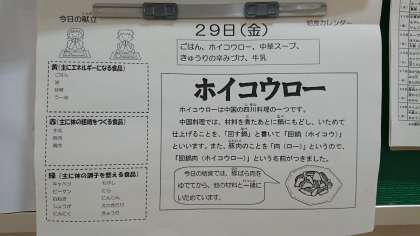 今日の献立
給食カレンダー
29日(金)
ごはん、ホイコウロー、中華スープ、
きゅうりの辛みづけ、牛乳
黄(主にエネルギーになる食品)
ごはん
油
砂糖
ごま油
赤(主に体の組織をつくる食品)
牛乳
豚肉
鶏肉
緑(主に体の調子を整える食品)
キャベツ
ピーマン
にら
にんじん
しょうが
にんにく
きゅうり
ホイコウロー
ホイコウローは中国の四川料理の一つです。
中国料理では、材料を煮たあとに鍋にもどし、いためて
仕上げることを、「回す鍋」と書いて「回鍋(ホイコウ)」
といいます。また、豚肉のことを「肉(ロー)」というので、
「回鍋肉(ホイコウロー)」という名前がつきました。
今日の給食では、豚ばら肉を
ゆでてから、他の材料と一緒に
いためています。